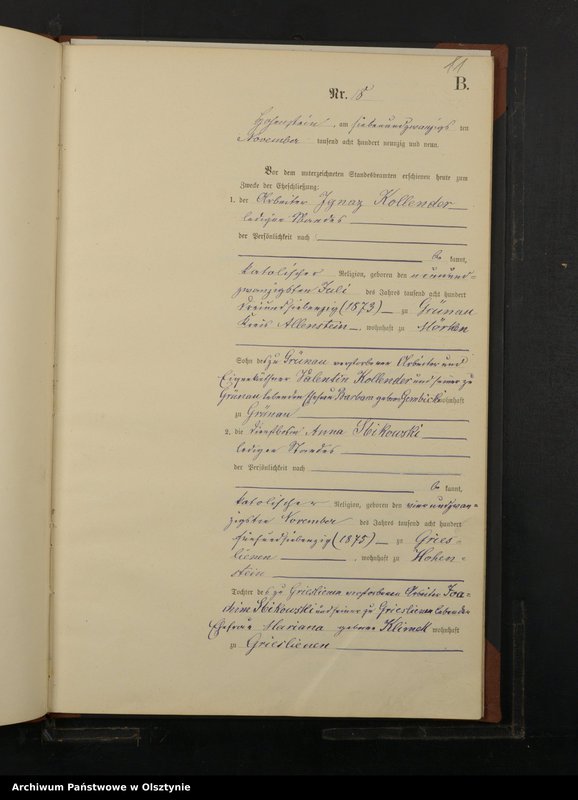 11
B.
Nr. 15
Hohenstein, am siebenundzwanzigsten
November tausend acht hundert neunzig und neun.
Vor dem unterzeichneten Standesbeamten erschienen heute zum
Zwecke der Eheschließung:
1. der Arbeiter Ignaz Kollender
lediger Standes
der Persönlichkeit nach
be kannt,
katolischer Religion, geboren den neunund=
zwanzigsten Juli des Jahres tausend acht hundert
dreiundsiebenzig (1873) zu Grünau
Kreis Allenstein, wohnhaft zu Mörken
Sohn des zu Grünau verstorbenen Arbeiter und
Eigenkäthner Valentin Kollender und seiner zu
Grünau lebenden Ehefrau Barbara geborne Gembicki wohnhaft
zu Grünau
2. die Dienstbotin Anna Sbikowski
lediger Standes
der Persönlichkeit nach
be kannt,
katolischer Religion, geboren den vierundzwan=
zigsten November des Jahres tausend acht hundert
fünfundsiebenzig (1875) zu Gries=
lienen, wohnhaft zu Hohen=
stein
Tochter des zu Grieslienen verstorbenen Arbeiter Joa=
chim Sbikowski und seiner zu Grieslienen lebenden
Ehefrau Mariana geborne Klimek wohnhaft
zu Grieslienen
Archiwum Państwowe w Olsztynie